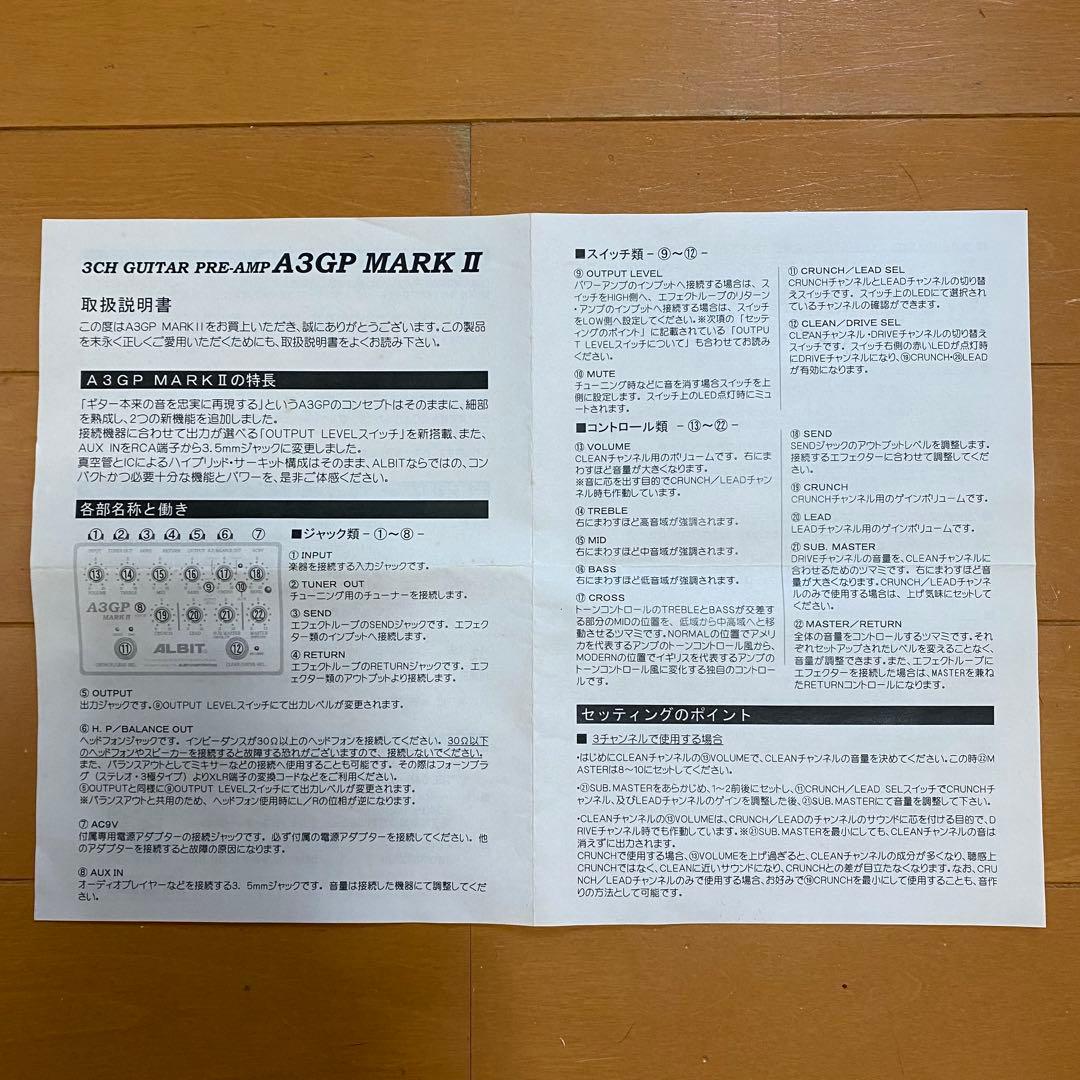 3CH GUITAR PRE-AMP A3GP MARK Ⅱ
取扱説明書
この度はA3GP MARKⅡをお買上いただき、誠にありがとうございます。この製品
を末永く正しくご愛用いただくためにも、取扱説明書をよくお読み下さい。
A3GP MARKⅡの特長
「ギター本来の音を忠実に再現する」というA3GPのコンセプトはそのままに、細部
を熟成し、2つの新機能を追加しました。
接続機器に合わせて出力が選べる「OUTPUT LEVELスイッチ」を新搭載、また、
AUX INをRCA端子から3.5mmジャックに変更しました。
真空管とICによるハイブリッド・サーキット構成はそのまま、ALBITならではの、コン
パクトかつ必要十分な機能とパワーを、是非ご体感ください。
各部名称と働き
① ② ③ ④ ⑤ ⑥ ⑦
INPUT TUNER OUT SEND RETURN OUTPUT H.P./BALANCE OUT AC9V
⑬ ⑭ ⑮ ⑯ ⑰ ⑱
VOLUME TREBLE MID BASS CROSS SEND
⑨ ⑩
A3GP
MARK Ⅱ
⑧ ⑲ ⑳ ㉑ ㉒
CRUNCH LEAD SUB MASTER MASTER
⑪ ALBIT ⑫
CRUNCH/LEAD SEL. CLEAN/DRIVE SEL.
■ジャック類 -①~⑧-
① INPUT
楽器を接続する入力ジャックです。
② TUNER OUT
チューニング用のチューナーを接続します。
③ SEND
エフェクトループのSENDジャックです。エフェク
ター類のインプットへ接続します。
④ RETURN
エフェクトループのRETURNジャックです。エフ
ェクター類のアウトプットより接続します。
⑤ OUTPUT
出力ジャックです。⑨OUTPUT LEVELスイッチにて出力レベルが変更されます。
⑥ H. P/BALANCE OUT
ヘッドフォンジャックです。インピーダンスが30Ω以上のヘッドフォンを接続してください。30Ω以下
のヘッドフォンやスピーカーを接続すると故障する恐れがございますので、接続しないでください。
また、バランスアウトとしてミキサーなどの接続へ使用することも可能です。その際はフォーンプラ
グ(ステレオ・3極タイプ)よりXLR端子の変換コードなどをご利用ください。
⑤OUTPUTと同様に⑨OUTPUT LEVELスイッチにて出力レベルが変更されます。
※バランスアウトと共用のため、ヘッドフォン使用時にL/Rの位相が逆になります。
⑦ AC9V
付属専用電源アダプターの接続ジャックです。必ず付属の電源アダプターを接続してください。他
のアダプターを接続すると故障の原因になります。
⑧ AUX IN
オーディオプレイヤーなどを接続する3. 5mmジャックです。音量は接続した機器にて調整してくだ
さい。
■スイッチ類 -⑨~⑫-
⑨ OUTPUT LEVEL
パワーアンプのインプットへ接続する場合は、ス
イッチをHIGH側へ、エフェクトループのリターン
・アンプのインプットへ接続する場合は、スイッチ
をLOW側へ設定してください。※次項の「セッテ
ィングのポイント」に記載されている「OUTPU
T LEVELスイッチについて」も合わせてお読み
ください。
⑩ MUTE
チューニング時などに音を消す場合スイッチを上
側に設定します。スイッチ上のLED点灯時にミュ
ートされます。
⑪ CRUNCH/LEAD SEL
CRUNCHチャンネルとLEADチャンネルの切り替
えスイッチです。スイッチ上のLEDにて選択され
ているチャンネルの確認ができます。
⑫ CLEAN/DRIVE SEL
CLEANチャンネル・DRIVEチャンネルの切り替え
スイッチです。スイッチ右側の赤いLEDが点灯時
にDRIVEチャンネルになり、⑲CRUNCH・⑳LEAD
が有効になります。
■コントロール類 -⑬~㉒-
⑬ VOLUME
CLEANチャンネル用のボリュームです。右にま
わすほど音量が大きくなります。
※音に芯を出す目的でCRUNCH/LEADチャン
ネル時も作動しています。
⑭ TREBLE
右にまわすほど高音域が強調されます。
⑮ MID
右にまわすほど中音域が強調されます。
⑯ BASS
右にまわすほど低音域が強調されます。
⑰ CROSS
トーンコントロールのTREBLEとBASSが交差す
る部分のMIDの位置を、低域から中高域へと移
動させるツマミです。NORMALの位置でアメリ
カを代表するアンプのトーンコントロール風から、
MODERNの位置でイギリスを代表するアンプの
トーンコントロール風に変化する独自のコントロー
ルです。
⑱ SEND
SENDジャックのアウトプットレベルを調整します。
接続するエフェクターに合わせて調整してくだ
さい。
⑲ CRUNCH
CRUNCHチャンネル用のゲインボリュームです。
⑳ LEAD
LEADチャンネル用のゲインボリュームです。
㉑ SUB. MASTER
DRIVEチャンネルの音量を、CLEANチャンネルに
合わせるためのツマミです。右にまわすほど音
量が大きくなります。CRUNCH/LEADチャンネ
ルのみで使用する場合は、上げ気味にセットし
てください。
㉒ MASTER/RETURN
全体の音量をコントロールするツマミです。それ
ぞれセットアップされたレベルを変えることなく、
音量が調整できます。また、エフェクトループに
エフェクターを接続した場合は、MASTERを兼ね
たRETURNコントロールになります。
セッティングのポイント
■ 3チャンネルで使用する場合
・はじめにCLEANチャンネルの⑬VOLUMEで、CLEANチャンネルの音量を決めてください。この時㉒M
ASTERは8~10にセットしてください。
・㉑SUB.MASTERをあらかじめ、1~2前後にセットし、⑪CRUNCH/LEAD SELスイッチでCRUNCHチ
ャンネル、及びLEADチャンネルのゲインを調整した後、㉑SUB.MASTERにて音量を調整して下さい。
・CLEANチャンネルの⑬VOLUMEは、CRUNCH/LEADのチャンネルのサウンドに芯を付ける目的で、D
RIVEチャンネル時でも作動しています。※㉑SUB.MASTERを最小にしても、CLEANチャンネルの音は
消えずに出力されます。
CRUNCHで使用する場合、⑬VOLUMEを上げ過ぎると、CLEANチャンネルの成分が多くなり、聴感上
CRUNCHではなく、CLEANに近いサウンドになり、CRUNCHとの差が目立たなくなります。なお、CRU
NCH/LEADチャンネルのみで使用する場合、お好みで⑲CRUNCHを最小にして使用することも、音作
りの方法として可能です。